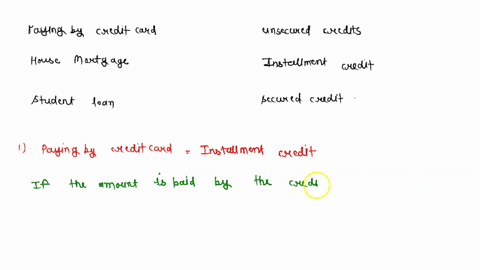 Paying by credit card unsecured credits
House Mortgage Installment credit
Student loan secured credit
1) Paying by credit card = Installment credit
If the amount is paid by the credi